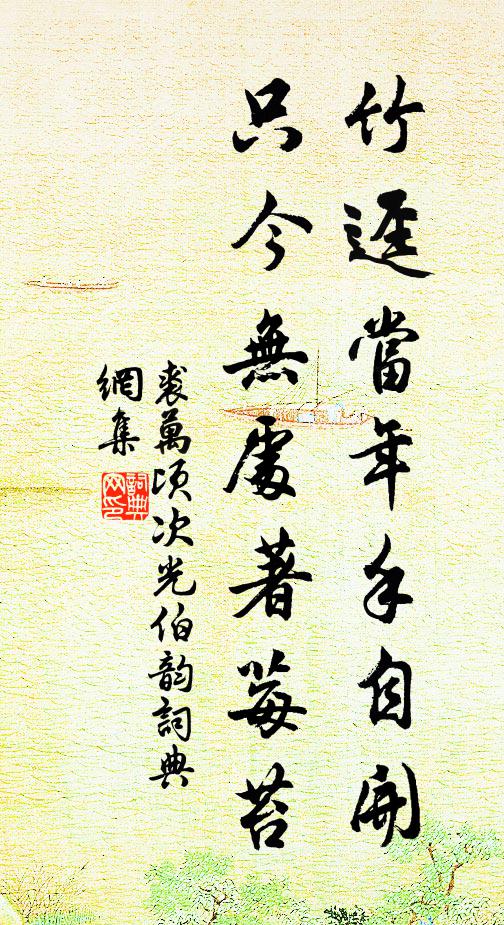 竹逕當年手自開
只今無處著莓苔
裘萬頃次光伯韵詞典
網集
詞典
网印